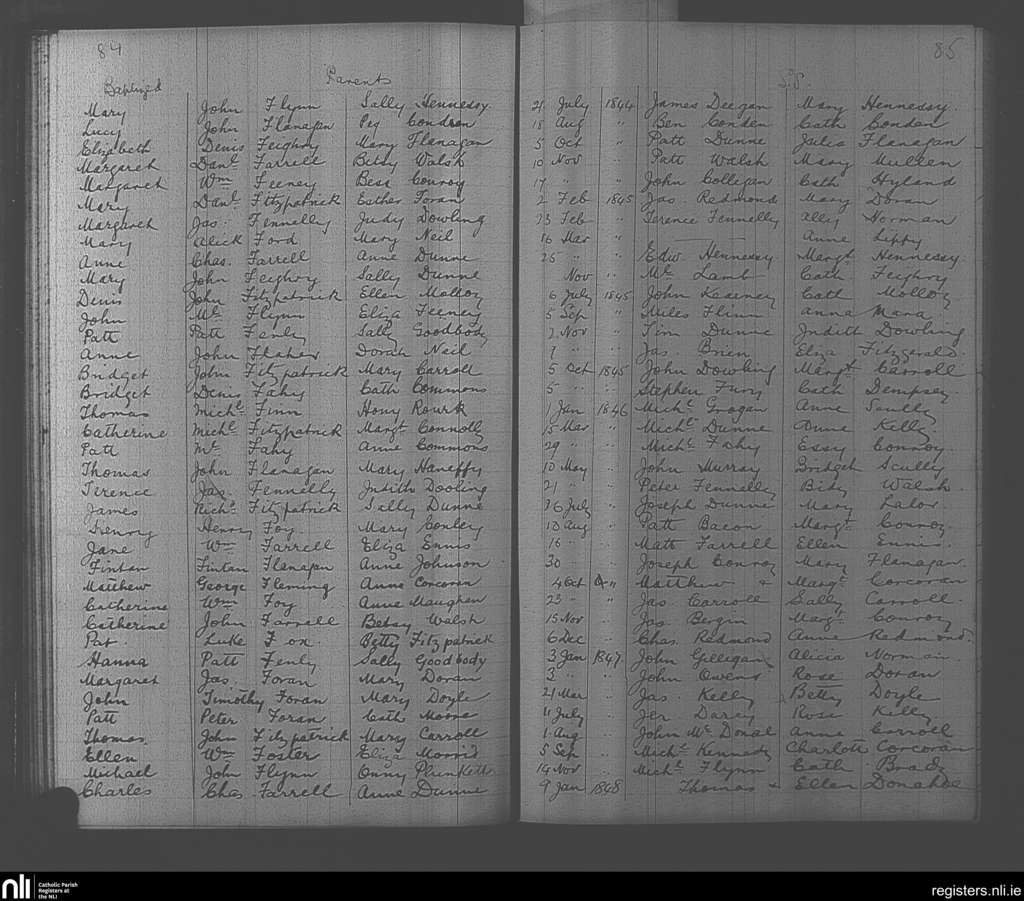 84
85
Baptized Parents S.P.
Mary John Flynn Sally Hennessy 21 July 1844 James Deegan Mary Hennessy
Lucy John Flanagan Peg Condron 18 Aug " Ben Conden Cath Condon
Elizabeth Denis Feighry Mary Flanagan 5 Oct " Patt Dunne Julia Flanagan
Margaret Danl Farrell Betsy Walsh 10 Nov " Patt Walsh Mary Mullen
Margaret Wm Feeney Bess Conroy 17 " " John Colligan Cath Hyland
Mary Danl Fitzpatrick Esther Foran 2 Feb 1845 Jas. Redmond Mary Doran
Margaret Jas. Fennelly Judy Dowling 23 Feb " Terence Fennelly Ally Norman
Mary Alick Ford Mary Neil 16 Mar " Anne Lippy
Anne Chas. Farrell Anne Dunne 25 " " Edw. Hennessy Margt Hennessy
Mary John Feighry Sally Dunne Nov " Ml. Lamb Cath Feighry
Denis John Fitzpatrick Ellen Molloy 6 July 1845 John Kearney Cath Molloy
John Ml. Flynn Eliza Feeney 5 Sep " Miles Flinn Anna Mara
Patt Patt Fenly Sally Goodbody 2 Nov " Tim Dunne Judith Dowling
Anne John Flaher Dorah Neil 7 " " Jas. Brien Eliza Fitzgerald
Bridget John Fitzpatrick Mary Carroll 5 Oct 1845 John Dowling Margt Carroll
Bridget Denis Fahy Cath Commons 5 " " Stephen Fury Cath Dempsey
Thomas Michl. Finn Hony Rourk 1 Jan 1846 Michl Grogan Anne Scully
Catherine Michl Fitzpatrick Margt Connolly 15 Mar " Michl Dunne Anne Kelly
Patt Ml. Fahy Anne Commons 29 " " Michl. Fahy Essy Conroy
Thomas John Flanagan Mary Haneffy 10 May " John Murray Bridget Scully
Terence Jas. Fennelly Judith Dooling 21 " " Peter Fennelly Bidy Walsh
James Richd Fitzpatrick Sally Dunne 26 July " Joseph Dunne Mary Lalor
Henry Henry Foy Mary Conley 10 Aug " Patt Bacon Margt Conroy
Jane Wm Farrell Eliza Ennis 16 " " Matt Farrell Ellen Ennis
Fintan Fintan Flanagan Anne Johnson 30 " " Joseph Conroy Mary Flanagan
Matthew George Fleming Anne Corcoran 4 Oct " Matthew & Margt Corcoran
Catherine Wm Foy Anne Maugren 23 " " Jas. Carroll Sally Carroll
Catherine John Farrell Betsy Walsh 15 Nov " Jas. Bergin Margt Conroy
Pat Luke Fox Betty Fitzpatrick 6 Dec " Chas. Redmond Anne Redmond
Hanna Patt Fenly Sally Goodbody 3 Jan 1847 John Gilligan Alicia Norman
Margaret Jas. Foran Mary Doran 3 " " John Owens Rose Doran
John Timothy Foran Mary Doyle 21 Mar " Jas Kelly Betty Doyle
Patt Peter Foran Cath Moore 11 July " Jer. Darcy Rose Kelly
Thomas John Fitzpatrick Mary Carroll 1 Aug " John Mc Donal Anne Carroll
Ellen Wm Foster Eliza Morris 5 Sep " Michl Kennedy Charlott Corcoran
Michael John Flynn Onny Plunkett 14 Nov " Michl. Flynn Cath Brady
Charles Chas Farrell Anne Dunne 9 Jan 1848 Thomas & Ellen Donahoe
nli Catholic Parish Registers at the NLI
registers.nli.ie